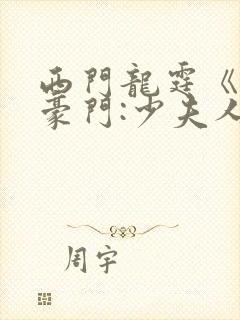 西門龍霆《
豪門:少夫人
周宇